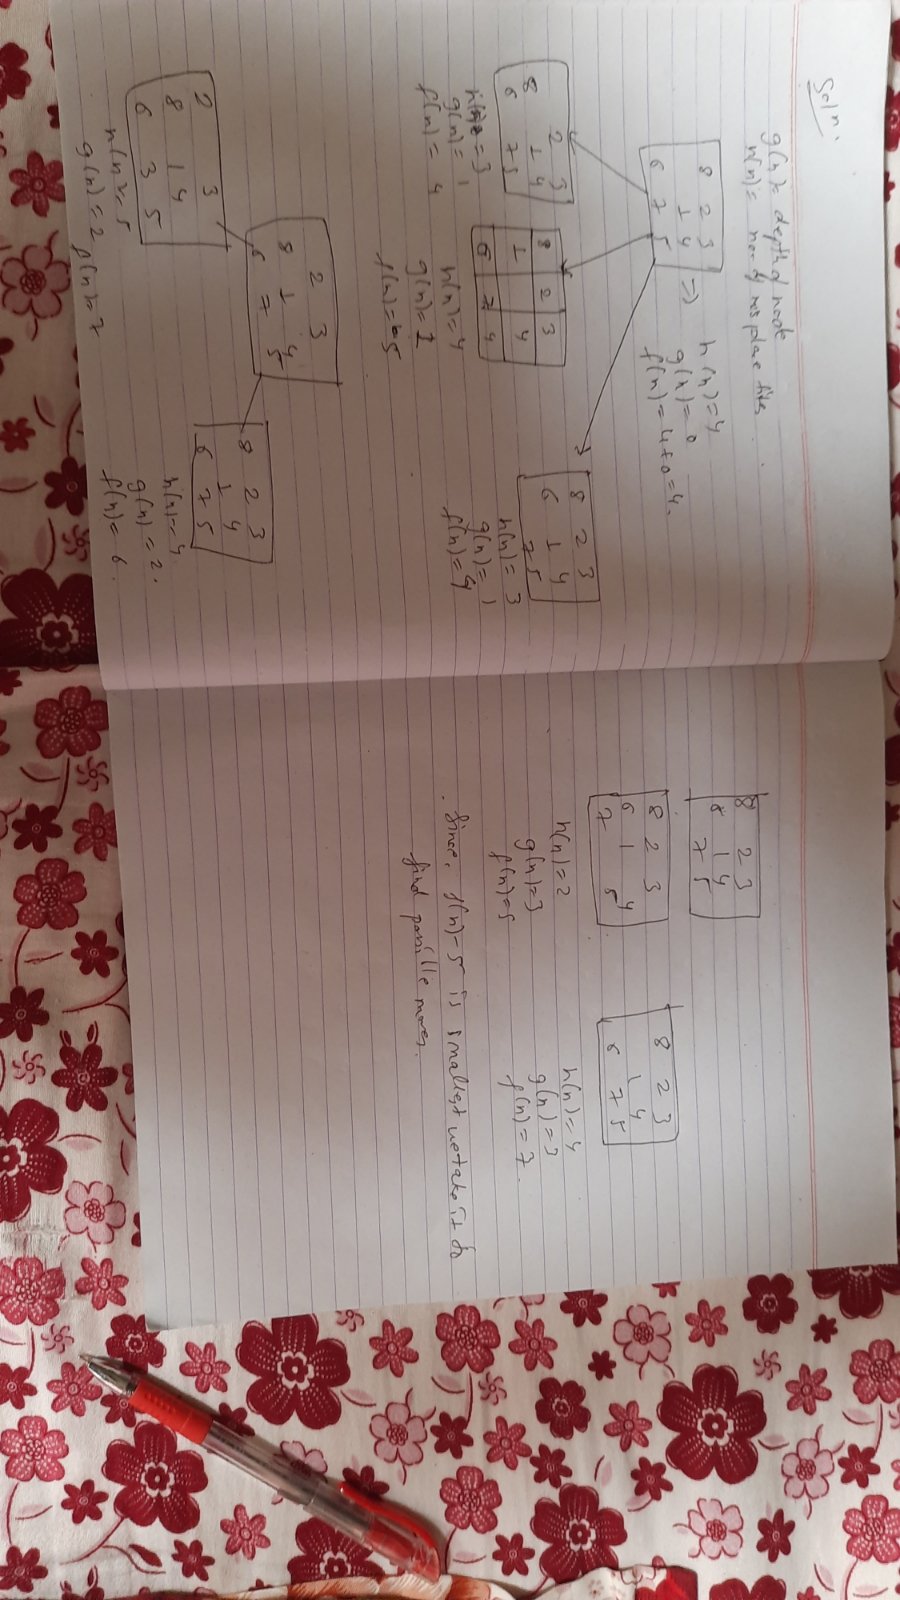 Soln:
g(n) = depth of node
h(n) = no. of misplace tiles.
8 2 3
1 4
6 7 5
=>
h(n) = 4
g(n) = 0
f(n) = 4+0 = 4.
2 3
8 1 4
6 7 5
h(n) = 3
g(n) = 1
f(n) = 4
8 2 3
1 4
6 7 4
h(n) = 4
g(n) = 1
f(n) = 5
8 2 3
1 4
6 7 5
h(n) = 3
g(n) = 1
f(n) = 4
2 3
8 1 4
6 7 5
2 3
8 1 4
6 3 5
h(n) = 5
g(n) = 2
f(n) = 7
8 2 3
1 4
6 7 5
h(n) = 4
g(n) = 2.
f(n) = 6.
8 2 3
6 1 4
7 5
8 2 3
6 1 4
7 5
h(n) = 2
g(n) = 3
f(n) = 5
8 2 3
1 4
6 7 5
h(n) = 4
g(n) = 3
f(n) = 7.
Since, f(n) - 5 is smallest we take it to
find possible moves.